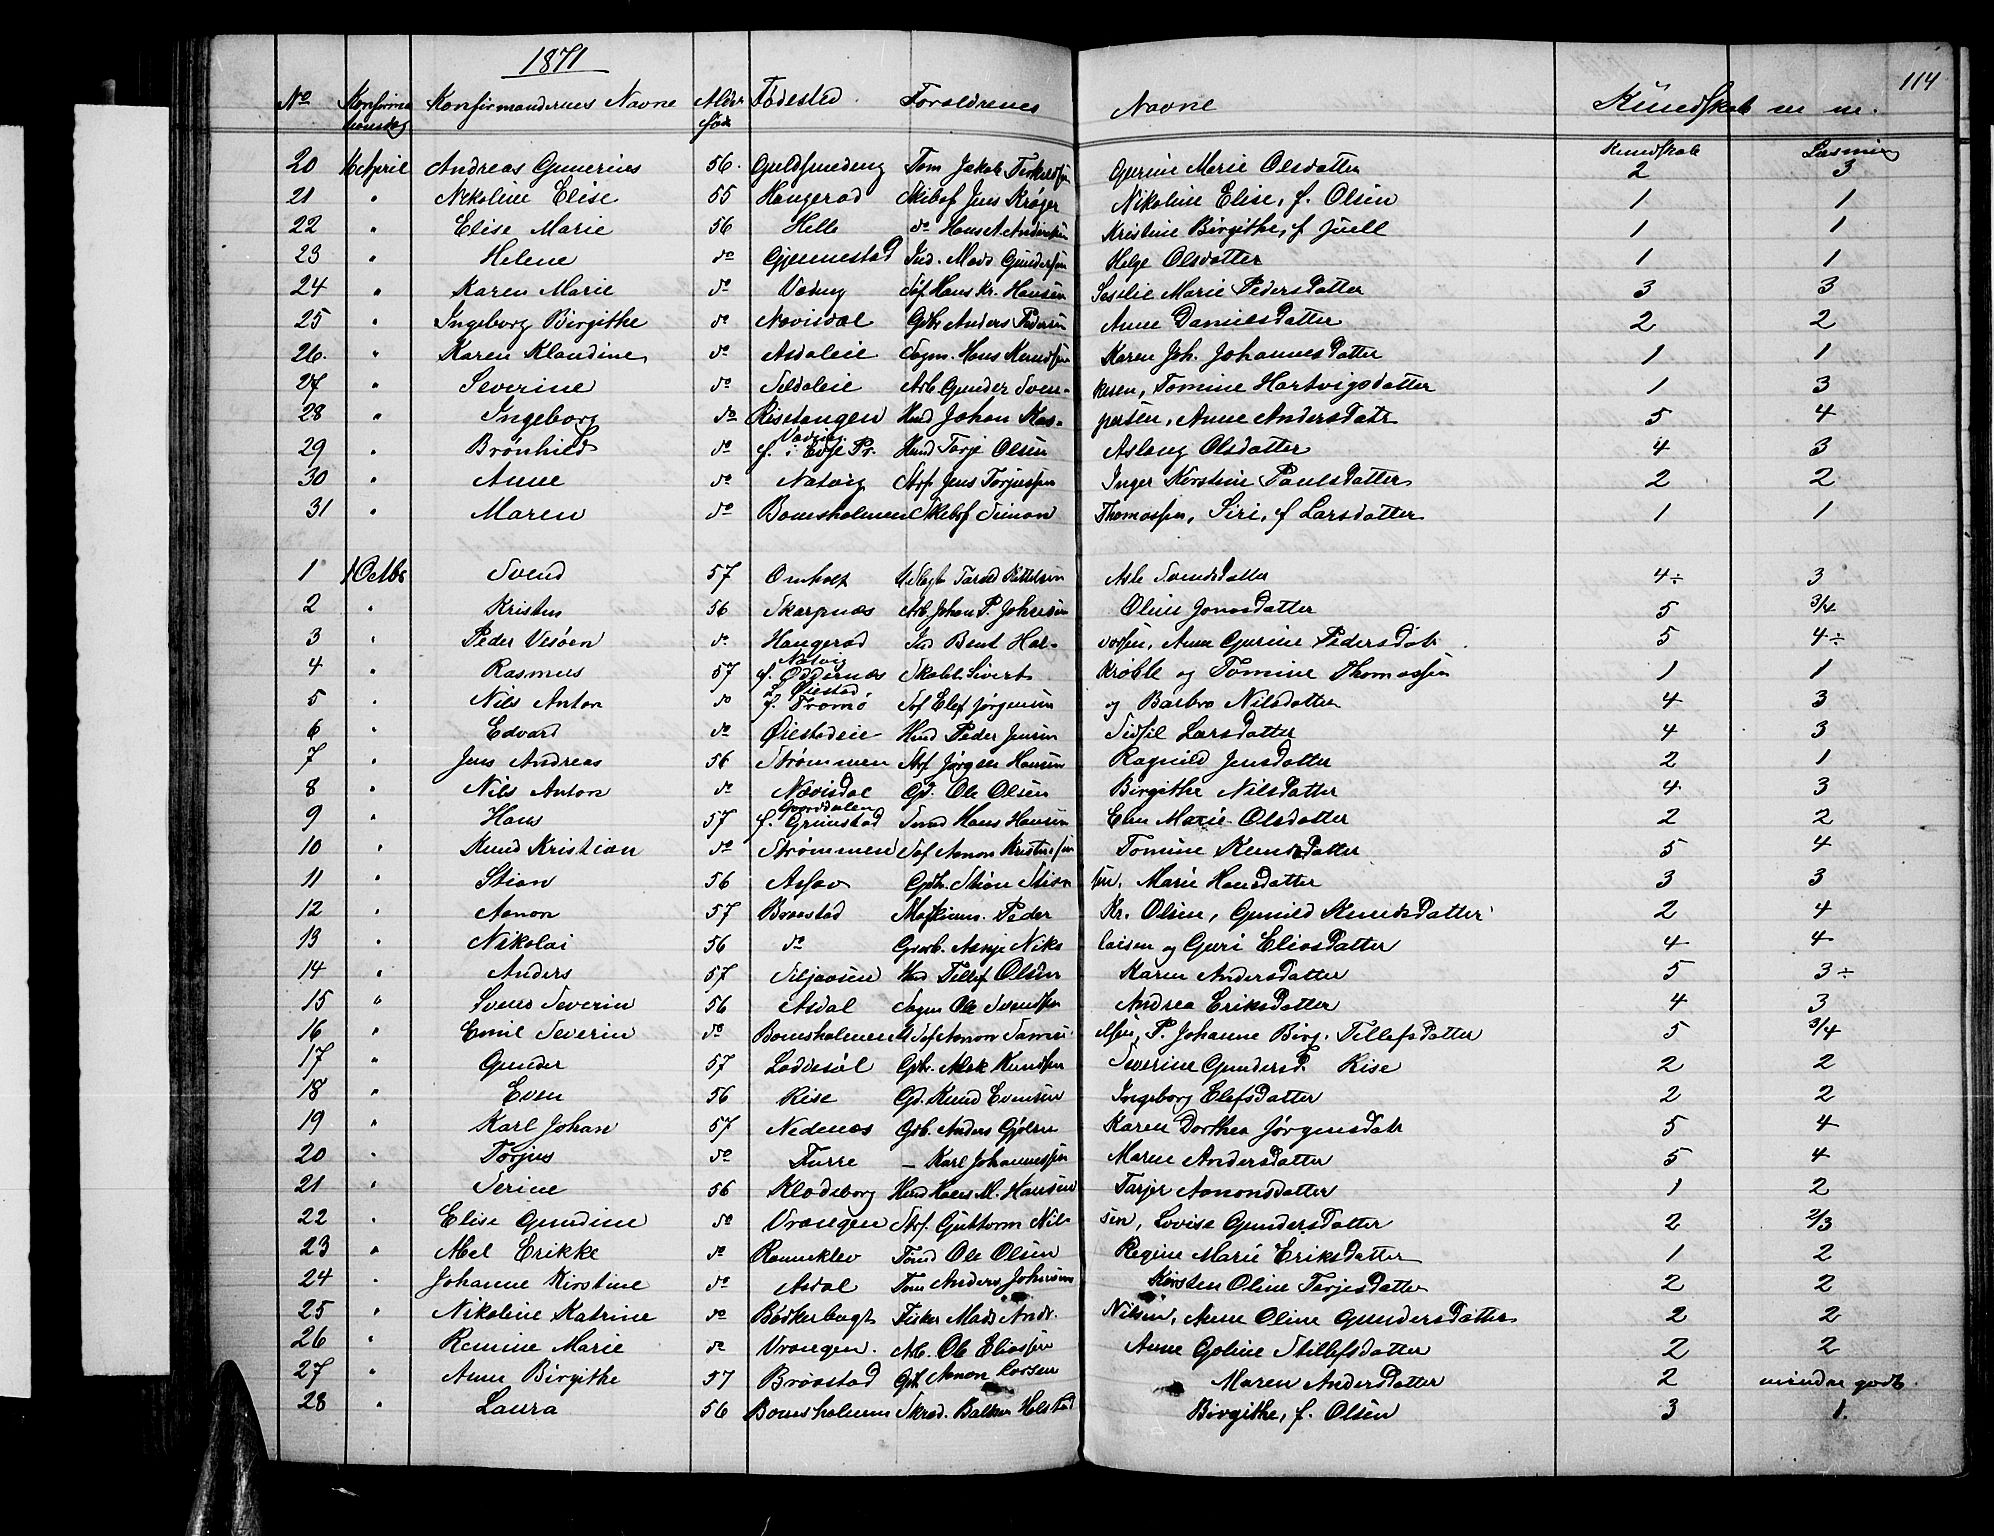 1871
114
No Konfirma Konfirmandernes Navne Alder Fødested. Forældrenes Navne Kundskab m m.
tionsdag født
Kundskab Læsning
20 16 April Andreas Gunerius 56. Guldsmedeng Tom Jakob Terkelsen Gurine Marie Olsdatter 2 3
21 " Nikoline Elise 55 Haugerød Skibsf Jens Krøger Nikoline Elise, f. Olsen 1 1
22 " Elise Marie 56 Helle do Hans A. Andersen Kristine Birgithe, f Juell 1 1
23 " Helene do Gjennestad Ind. Mads Gundersen Helge Olsdatter 1 1
24 " Karen Marie do Søf Hans Kr. Hansen Sesilie Marie Pedersdatter 3 3
25 " Ingeborg Birgithe do Nævisdal Gdbr Anders Pedersen Anne Danielsdatter 2 2
26. " Karen Klaudine do Asdaleie Sagm. Hans Knudsen Karen Joh. Johannesdatter 1 1
27 " Severine do Arb Gunder Sven- kesen, Tomine Hartvigsdatter 1 3
28 " Ingeborg do Risetangen Hmd Johan Kas- persen, Anne Andersdatr 5 4
29 " Brønhild do f. i Evje Pr. Hmd Torje Olsen Aslaug Olsdatter 4 3
30 " Anne do Natvig Arb Jens Torjussen Inger Kirstine Paulsdatter 2 2
31 " Maren do Bomsholmen Skibsf Simon Thomassen, Siri, f Larsdatter 1 1
1 1 Octbr Svend 57 Omholt Tarald Kittelsen Asle Svendsdatter 4÷ 3
2 " Kristen 56 Skarpnæs Arb Johan P. Johnsen Oline Jonasdatter 5 3/4
3 " Peder Vesøen do Haugerød Ind Bent Hal- vorsen, Anne Gurine Pedersdatr 5 4÷
Natvig
4 " Rasmus 57 f. Oddernæs Skolel. Sivert Krøble og Tomine Thomassen 1 1
Øiestad
5 " Nils Anton do f. Tromø Søf Elef Jørgensen og Barbro Nilsdatter 4 3
6 " Edvard do Øiestadeie Hmd Peder Jensen Sidsil Larsdatter 4 3
7 " Jens Andreas 56 Strømmen Søf Jørgen Hansen Ragnild Jensdatter 2 1
8 " Nils Anton do Nævisdal Gd. Ole Olsen Birgithe Nilsdatter 4 3
9 " Hans 57 f. Grimstad Hans Hansen Marie Olsdatter 2 2
10 " Knud Kristian do Strømmen Søf Aanon Kristensen Tomine Knudsdatter 5 4
11 " Stian 56 Assav Gdbr. Stian Stian sen, Marie Hansdatter 3 3
12 " Aanon 57 Braastad Maskinm. Peder Kr. Olsen, Gunild Knudsdatter 2 4
13 " Nikolai 56 do Gruvb. Asnje Niko laisen og Guri Eliasdatter 4 4
14 " Anders 57 Hmd Tellef Olsen Karen Andersdatter 5 3÷
15 " Svens Severin 56 Asdal Sagm Ole Svendsen Andrea Eriksdatter 4 3
16 " Emil Severin do Bomsholmen Søf Aanon Samu elsen, P. Johanne Birg. Tellefsdatter 5 3/4
17 " Gunder 57 Løddesøl Gdbr. Alek Knudsen Severine Gundersd. Rise 2 2
18 " Even 56 Rise Gd. Knud Evensen Ingeborg Elefsdatter 2 2
19 " Karl Johan 57 Nedenæs Gdb. Anders Gjølsen Karen Dorthea Jørgensdatr 5 4
20 " Torjus do Furre — Karl Johannessen Maren Andersdatter 5 4
21 " Serine 56 Klodeborg Hmd Hans M. Hansen Tarjer Aanonsdatter 1 2
22 " Elise Gundine do Vrangen Arb. Guttorm Nil- sen, Lovise Gundersdatter 2 2/3
23 " Abel Erikke do Ranneklev Tømd Ole Olsen Regine Marie Eriksdatter 1 2
24 " Johanne Kirstine do Asdal Tøm Anders Johnsen Kirsten Oline Tarjesdatter 2 2
25 " Nikoline Katrine do Bødkerbugt Fisker Mads Andr. Nilsen, Anne Oline Gundersdatter 2 2
26 " Romine Marie do Vrangen. Arb. Ole Eliassen Anne Goline Stillefsdatter 2 2
27 " Anne Birgithe 57 Braastad Gdb Aanon Larsen Maren Andersdatter 2 mindre godt
28 " Laura 56 Bomsholmen Skræd. Balser Holstad Birgithe, f. Olsen 3 1.